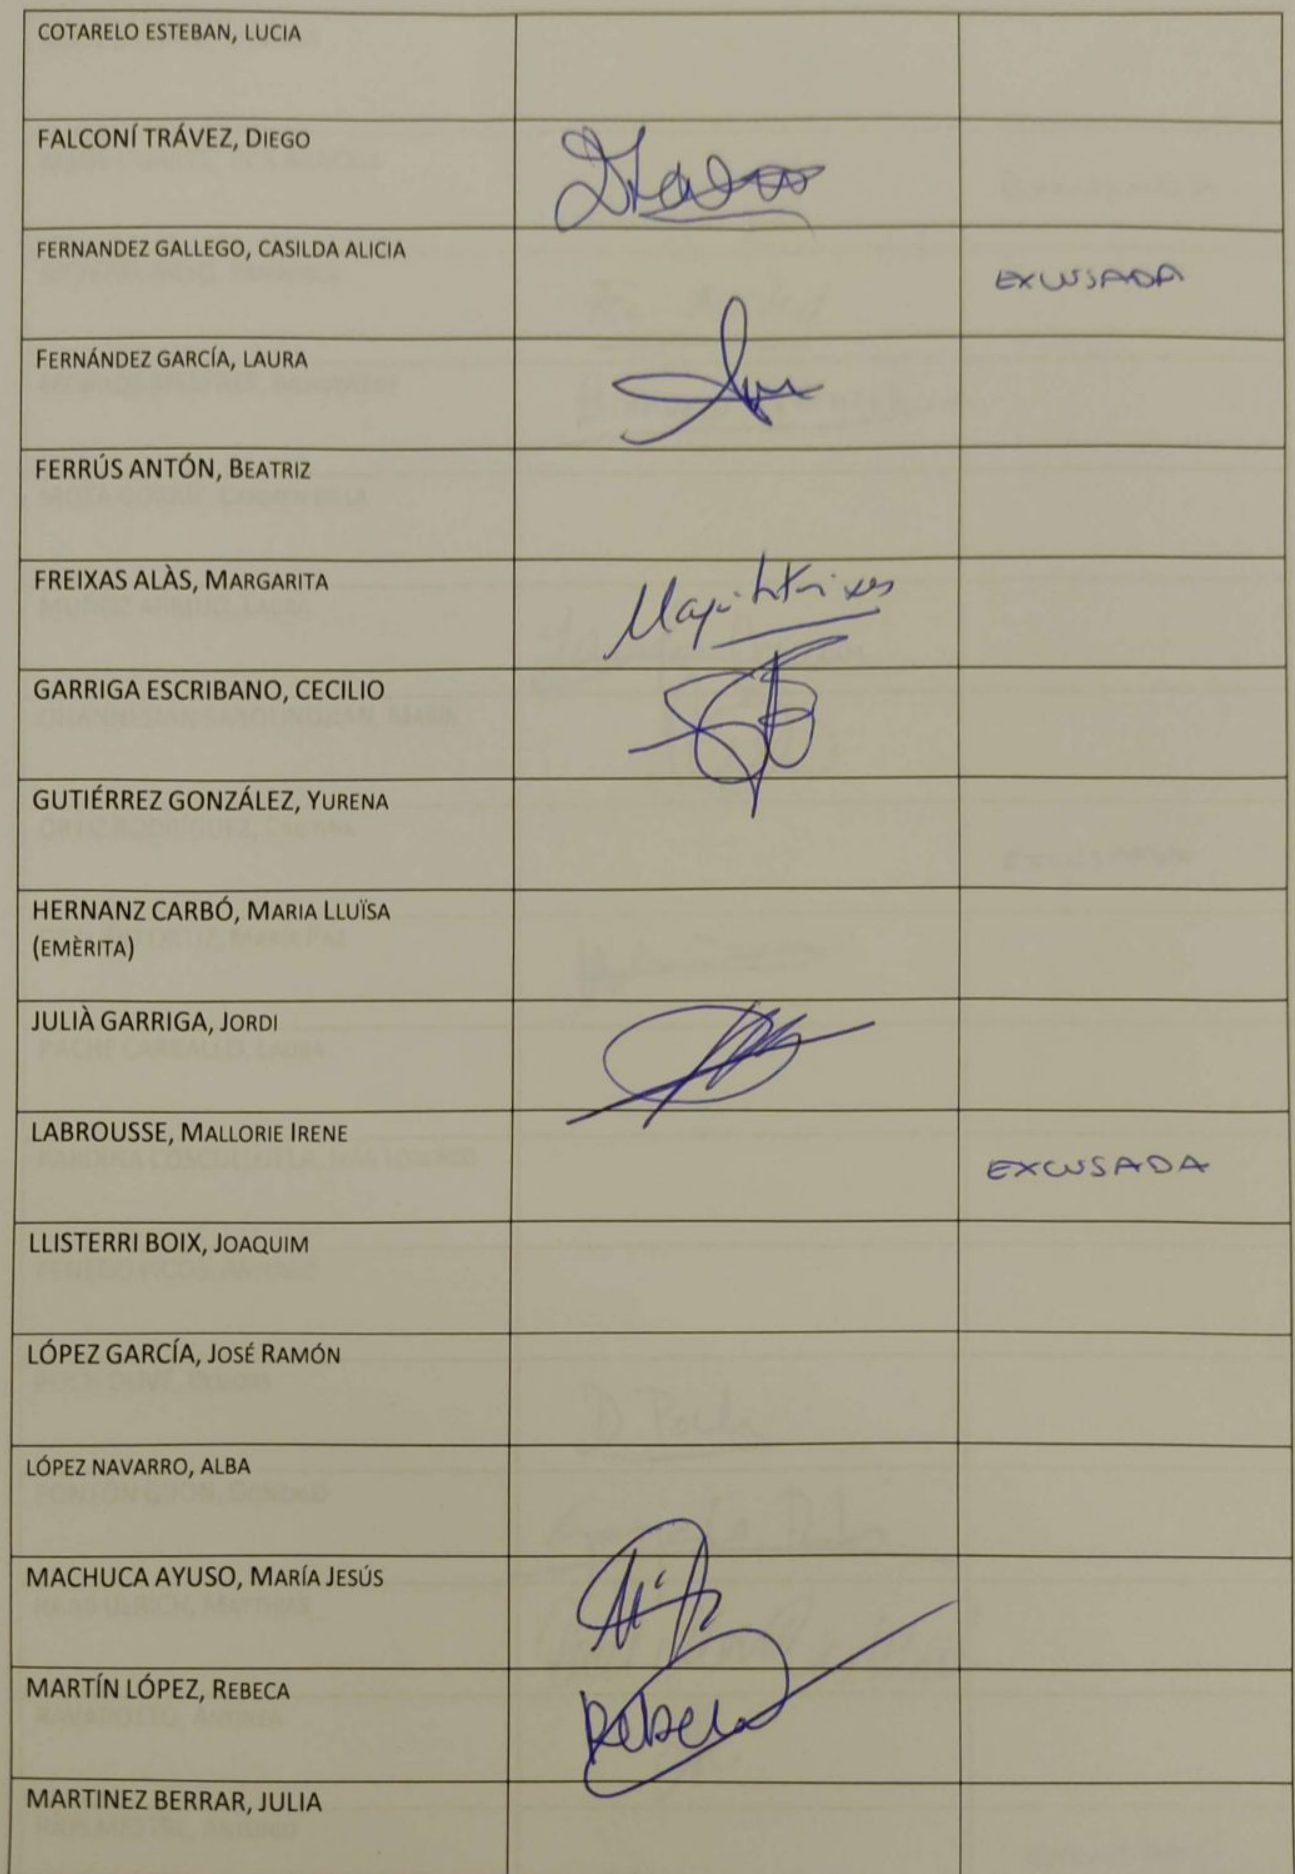 COTARELO ESTEBAN, LUCIA
FALCONÍ TRÁVEZ, DIEGO
FERNANDEZ GALLEGO, CASILDA ALICIA
EXCUSADA
FERNÁNDEZ GARCÍA, LAURA
FERRÚS ANTÓN, BEATRIZ
FREIXAS ALÀS, MARGARITA
GARRIGA ESCRIBANO, CECILIO
GUTIÉRREZ GONZÁLEZ, YURENA
HERNANZ CARBÓ, MARIA LLUÏSA
(EMÈRITA)
JULIÀ GARRIGA, JORDI
LABROUSSE, MALLORIE IRENE
EXCUSADA
LLISTERRI BOIX, JOAQUIM
LÓPEZ GARCÍA, JOSÉ RAMÓN
LÓPEZ NAVARRO, ALBA
MACHUCA AYUSO, MARÍA JESÚS
MARTÍN LÓPEZ, REBECA
Rebeca
MARTINEZ BERRAR, JULIA